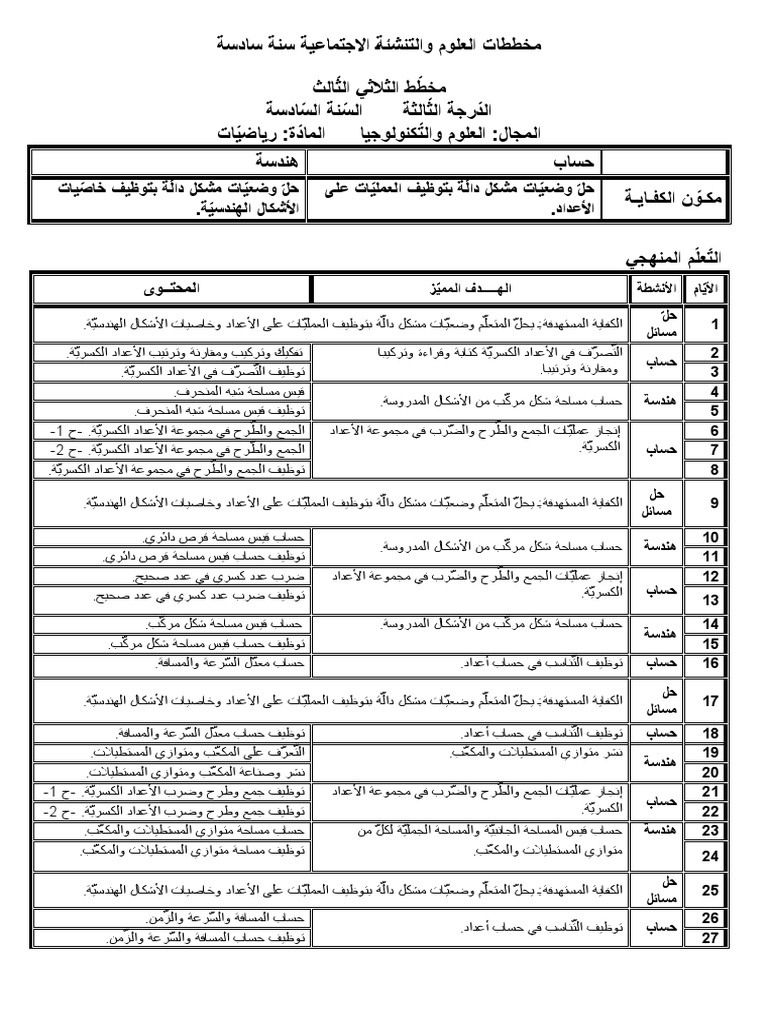 مخططات العلوم والتنشئة الاجتماعية سنة سادسة
مخطّط الثلاثي الثّالث
الدّرجة الثّالثة السّنة السّادسة
المجال: العلوم والتّكنولوجيا المادّة: رياضيّات
حساب هندسة
مكوّن الكفاية
حلّ وضعيّات مشكل دالّة بتوظيف العمليّات على الأعداد.
حلّ وضعيّات مشكل دالّة بتوظيف خاصّيات الأشكال الهندسيّة.
التّعلّم المنهجي
الأيّام الأنشطة الهدف المميّز المحتوى
1 حلّ مسائل الكفاية المستهدفة: يحلّ المتعلّم وضعيّات مشكل دالّة بتوظيف العمليّات على الأعداد وخاصيات الأشكال الهندسيّة.
2 حساب التّصرّف في الأعداد الكسريّة كتابة وقراءة وتركيبا ومقارنة وترتيبا. تفكيك وتركيب ومقارنة وترتيب الأعداد الكسريّة.
3 توظيف التّصرّف في الأعداد الكسريّة.
4 هندسة حساب مساحة شكل مركّب من الأشكال المدروسة. قيس مساحة شبه المنحرف.
5 توظيف قيس مساحة شبه المنحرف.
6 حساب إنجاز عمليّات الجمع والطّرح والضّرب في مجموعة الأعداد الكسريّة. الجمع والطّرح في مجموعة الأعداد الكسريّة. -ح 1-
7 الجمع والطّرح في مجموعة الأعداد الكسريّة. -ح 2-
8 توظيف الجمع والطّرح في مجموعة الأعداد الكسريّة.
9 حل مسائل الكفاية المستهدفة: يحلّ المتعلّم وضعيّات مشكل دالّة بتوظيف العمليّات على الأعداد وخاصيات الأشكال الهندسيّة.
10 هندسة حساب مساحة شكل مركّب من الأشكال المدروسة. حساب قيس مساحة قرص دائري.
11 توظيف حساب قيس مساحة قرص دائري.
12 حساب إنجاز عمليّات الجمع والطّرح والضّرب في مجموعة الأعداد الكسريّة. ضرب عدد كسري في عدد صحيح.
13 توظيف ضرب عدد كسري في عدد صحيح.
14 هندسة حساب مساحة شكل مركّب من الأشكال المدروسة. حساب قيس مساحة شكل مركّب.
15 توظيف حساب قيس مساحة شكل مركّب.
16 حساب توظيف التّناسب في حساب أعداد. حساب معدّل السّرعة والمسافة.
17 حل مسائل الكفاية المستهدفة: يحلّ المتعلّم وضعيّات مشكل دالّة بتوظيف العمليّات على الأعداد وخاصيات الأشكال الهندسيّة.
18 حساب توظيف التّناسب في حساب أعداد. توظيف حساب معدّل السّرعة والمسافة.
19 هندسة نشر متوازي المستطيلات والمكعّب. التّعرّف على المكعّب ومتوازي المستطيلات.
20 نشر وصناعة المكعّب ومتوازي المستطيلات.
21 حساب إنجاز عمليّات الجمع والطّرح والضّرب في مجموعة الأعداد الكسريّة. توظيف جمع وطرح وضرب الأعداد الكسريّة. -ح 1-
22 توظيف جمع وطرح وضرب الأعداد الكسريّة. -ح 2-
23 هندسة حساب قيس المساحة الجانبيّة والمساحة الجمليّة لكلّ من متوازي المستطيلات والمكعّب. حساب مساحة متوازي المستطيلات والمكعّب.
24 توظيف مساحة متوازي المستطيلات والمكعّب.
25 حل مسائل الكفاية المستهدفة: يحلّ المتعلّم وضعيّات مشكل دالّة بتوظيف العمليّات على الأعداد وخاصيات الأشكال الهندسيّة.
26 حساب توظيف التّناسب في حساب أعداد. حساب المسافة والسّرعة والزّمن.
27 توظيف حساب المسافة والسّرعة والزّمن.